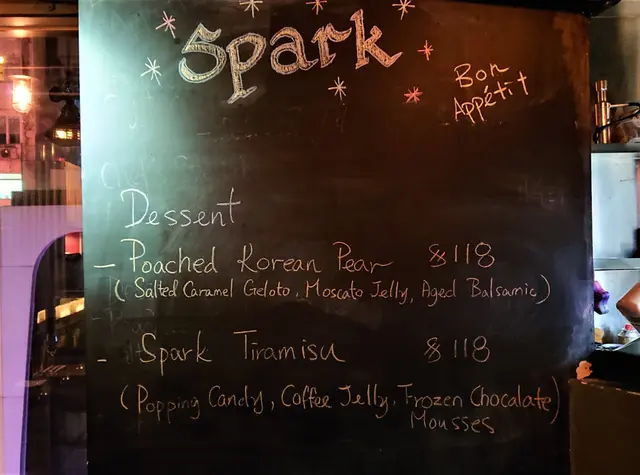 Spark
Bon
Appétit
Dessent
- Poached Korean Pear $118
( Salted Caramel Geloto, Moscato Jelly, Aged Balsamic )
- Spark Tiramisu $118
( Popping Candy, Coffee Jelly, Frozen Chocalate )
Mousses